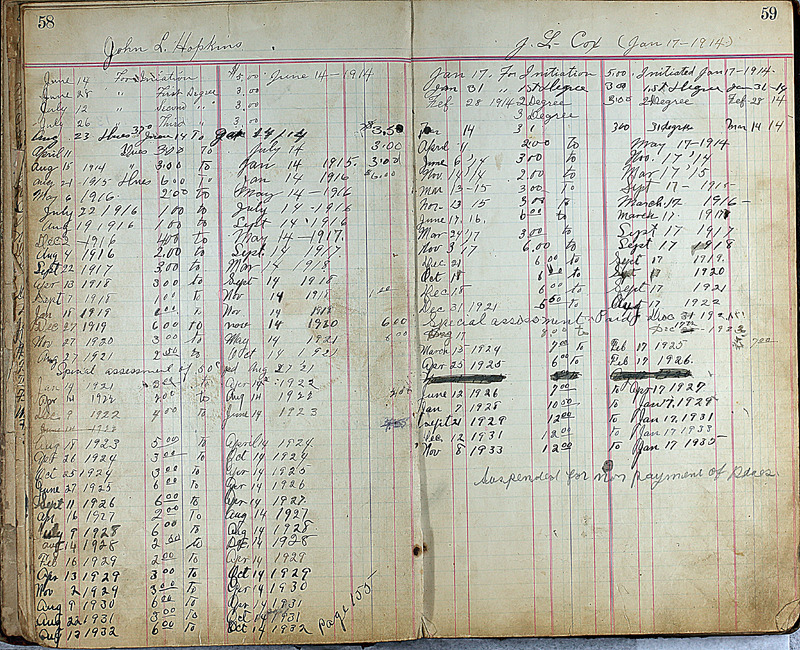 58
John L. Hopkins
June 14 For Initiation $5.00 June 14-1914
June 28 " First Degree 3.00
July 12 " Second " 3.00
July 26 " Third " 3.00
Aug 23 Dues June 14 To $3.50
April 11 Dues 3.00 To July 14 3.00
Aug 15 1914 " 3.00 to Jan 14 1915. 3.00
Aug 21-1915 Dues 6.00 to Jan 14 1916 $6.00
May 6 1916. 2.00 to May-14-1916
July 22 1916 1.00 to July 14-1916
Aug 19 1916 1.00 to Sept 14-1916
Dec 2-1916 4.00 to May 14-1917.
Aug 4 1916 2.00 to Sept 14-1917.
Sept 22 1917 3.00 to Mar 14-1918
Apr 13 1918 3.00 to Sept 14 1918
Sept 7 1918 1.00 to Nov 14 1918 1.00
Jan 18 1919 Nov 14 1918
Dec 27 1919 6.00 to nov 14 1920 6.00
Nov 27 1920 3.00 to May 14 1921 6.00
Aug 27 1921 to Oct 14 1921
Special assessment of 50¢ pd Aug 27 21
Jan 14 1921 to Apr 14 1922
Apr 14 1922 to Aug 14 1922
Dec 9 1922 4.00 to June 14 1923
Aug 18 1923 5.00 to April 14 1924
Oct 26 1924 3.00 to Oct 14 1924
Oct 25 1924 3.00 to Apr 14 1925
June 27 1925 6.00 to Apr 14 1926
Sept 11 1926 6.00 to Apr 14 1927.
Apr 16 1927 2.00 To Aug 14 1927
July 9 1928 6.00 To Aug 14 1928
Aug 14 1928 2.00 to Oct 14 1928
Feb 16 1929 2.00 To Apr 14 1929
Apr 13 1929 3.00 to Oct 14 1929
Nov 2 1929 3.00 To Apr 14 1930
Aug 9 1930 6.00 To Apr 14 1931
Aug 22 1931 3.00 To Oct 14 1931
Aug 13 1932 6.00 To Oct 14 1932 Page 155
59
J. L. Cox (Jan 17-1914)
Jan 17. For Initiation 5.00 Initiated Jan 17-1914.
Jan 31 " 1st Degree 3.00 1st Degree Jan 31-14
Feb 28 1914 2 Degree 3.00 2 Degree Feb 28 14
3 Degree
14 3.00 3 Degree Mar 14 14
April 11 2.00 to May 17-1914
June 6 '14 3.00 to Nov. 17 '14
Nov 14 '14 2.00 to Mar 17 '15
Mar 13-15 3.00 to Sept 17-1915
Nov 13 15 3.00 to March 17 1916-
June 17. 16. 6.00 to March 17 1917
Mar 24 '17 3.00 to Sept 17 1917
Nov 3 '17 6.00 to Sept 17 1918
Dec 21 6.00 to Sept 17 1919.
Oct 18 6.00 to Sept 17 1920
Dec 18 6.00 to Sept 17 1921
Dec 31 1921 6.00 to Aug 17 1922
Special assessment Paid Dec 31 1921
17 to 1923
March 15 1924 7.00 to Feb 17 1925 7.00
Apr 25 1925 6.00 to Feb 17 1926.
June 12 1926 7.00 to Apr 17 1927
Jan 7 1928 10.00 to Jan 17. 1929
Sept 21 1929 12.00 to Jan 17. 1931
Dec 12 1931 12.00 to Jan 17 1933
Nov 8 1933 12.00 to Jan 17 1935
Suspended for non payment of Dues